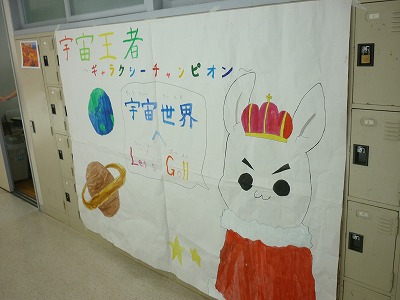 宇宙王者
～ギャラクシーチャンピオン～
宇宙世界
へ
Let's Go!!